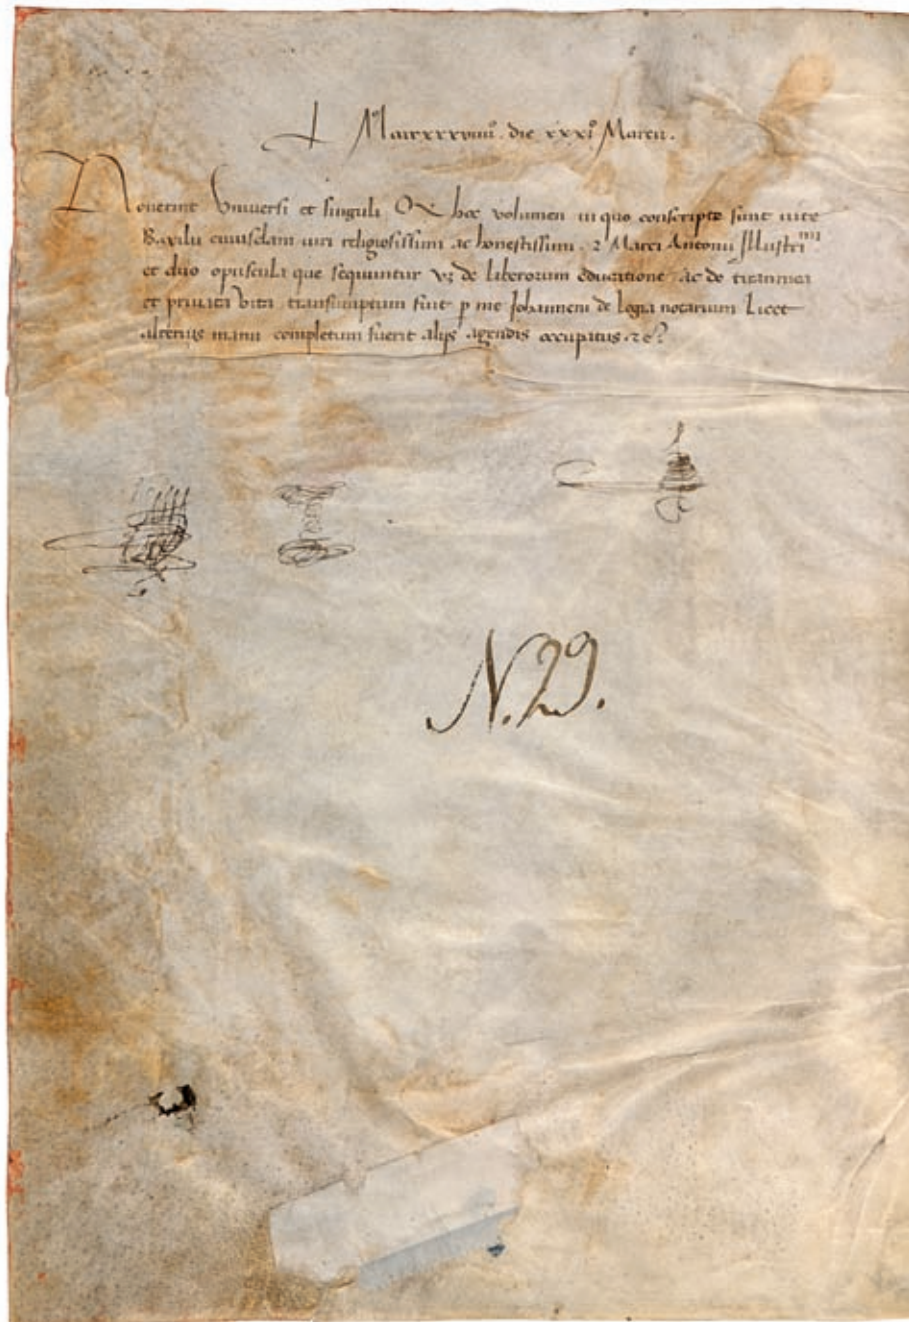 die xxxi° Marcii.
Noverint Universi et singuli Q hoc volumen in quo conscripte sunt vite
cuiusdam viri religiosissimi ac honestissimi. 2 Marci Antonii Illustrimi
et duo opuscula que sequuntur vz de liberorum educatione ac de tirannica
et privata vita transumptum fuit p me Johannem de Logia notarium Licet
alterius manu completum fuerit alijs agendis occupatus.
N. 29.